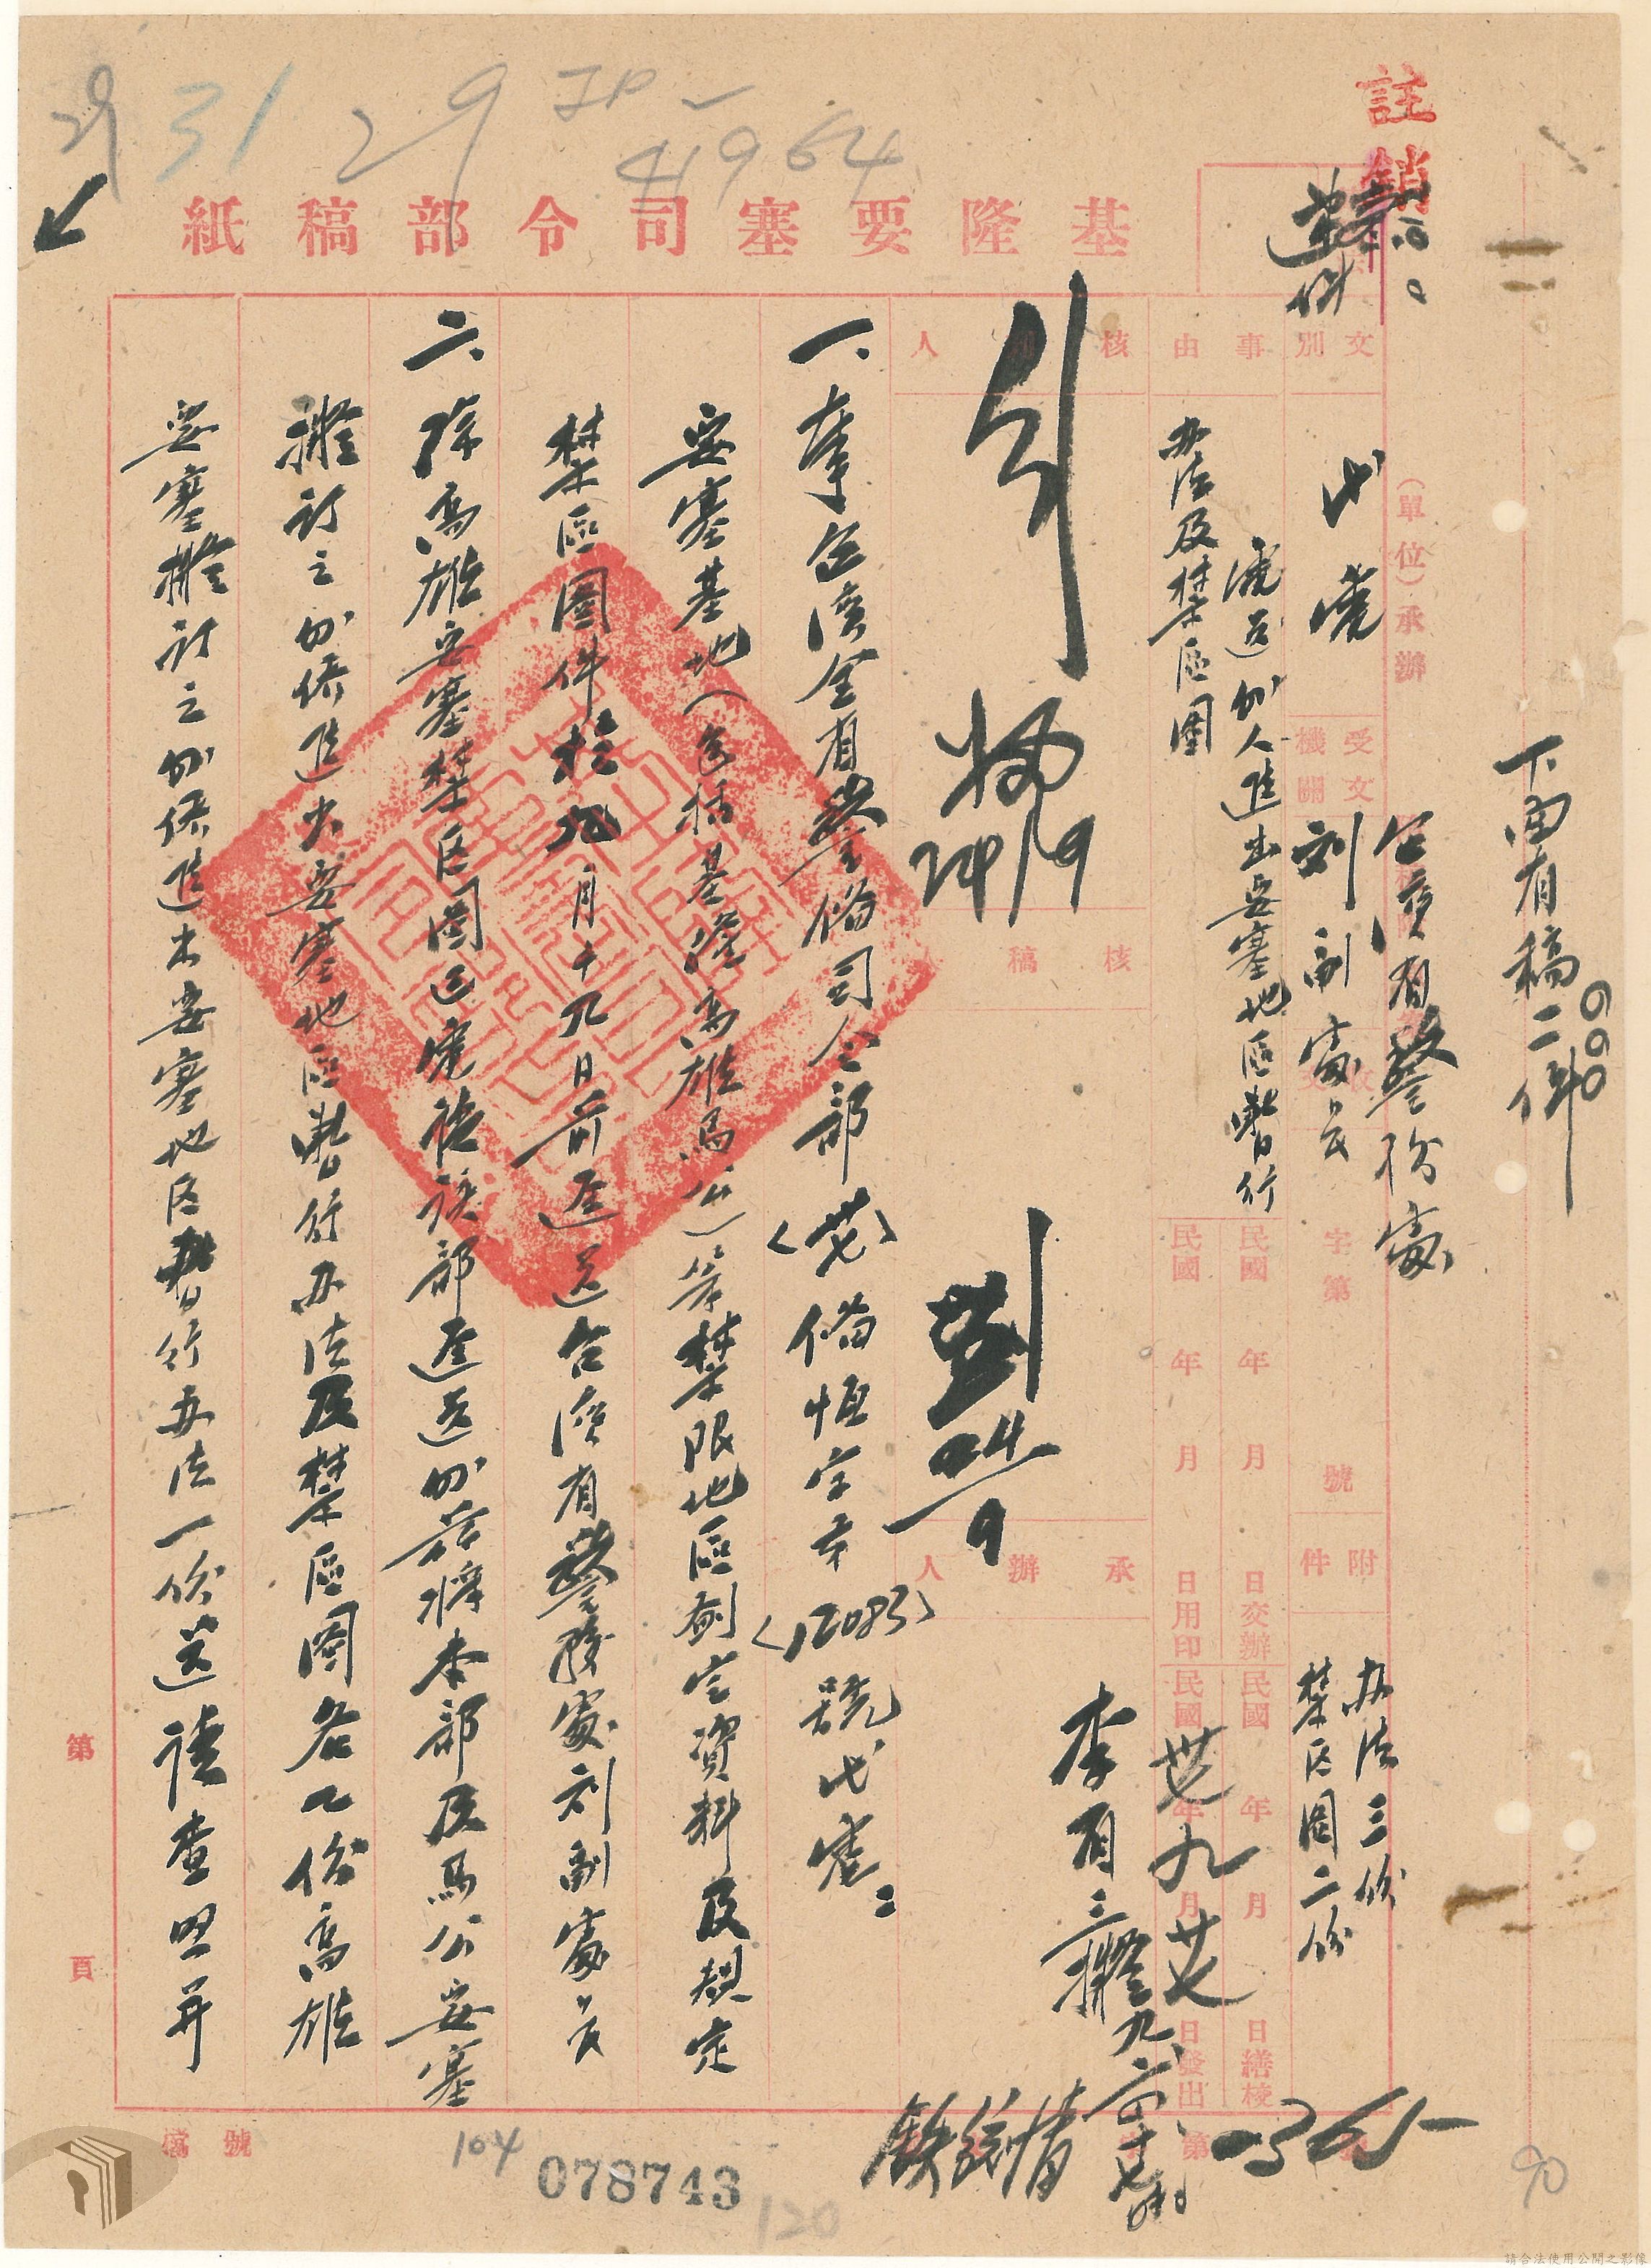 註銷
29 31 29 JP 4964
基隆要塞司令部稿紙
下面有稿二件
文別
代電
(單位)承辦
受文機關
台灣省警務處
劉副處長
字第 號
附件
办法三份
禁区圖二份
事由
電送外人進出要塞地區暫行
办法及禁區圖
民國 年 月 日交辦
民國 年 月 日用印
民國 年 月 日繕校
民國卅七年九月廿七日發出
第 365
核 人
24/9
核稿人
劉 24/9
承辦人
李有三擬 九、二四、十七時
一、奉台灣全省警備司令部(卅七)備恒字第(12083)號代電：
要塞基地(包括基隆高雄馬公)等禁限地區劃定資料及規定
禁區圖件於九月十九日前逕送台灣省警務處劉副處長
二、除高雄要塞禁区圖已電復該部逕送外茲將本部及馬公要塞
擬訂之外僑進出要塞地區暫行办法及禁區圖各乙份高雄
要塞擬訂之外僑進出要塞地区暫行办法一份送請查照并
第 頁
檔號
104
078743
120
90
請合法使用公開之影像